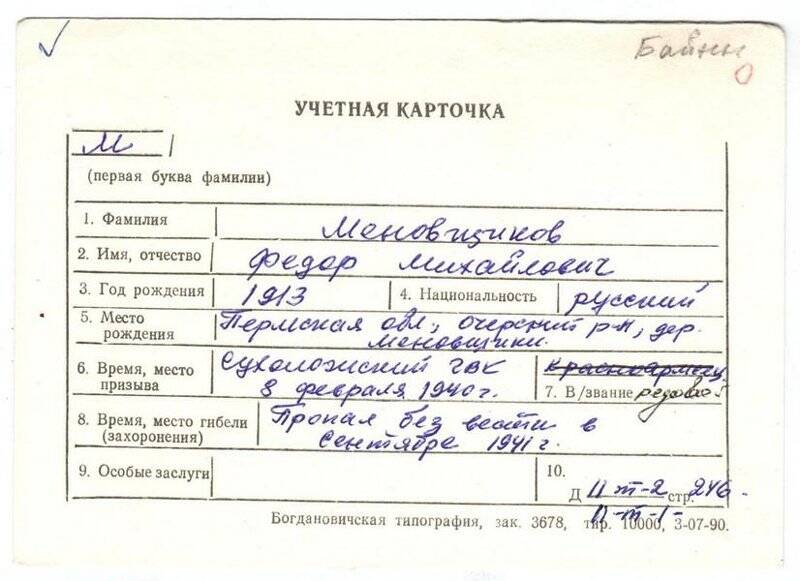 Байны
УЧЕТНАЯ КАРТОЧКА
М
(первая буква фамилии)
1. Фамилия Меновщиков
2. Имя, отчество Федор Михайлович
3. Год рождения 1913 4. Национальность русский
5. Место рождения Пермская обл., очерский р-н, дер.
Меновщики.
6. Время, место призыва Сухоложский ГВК
8 февраля 1940 г.
красноармеец
7. В/звание рядовой
8. Время, место гибели (захоронения) Пропал без вести в
Сентябре 1941 г.
9. Особые заслуги
10.
Д II т-2 стр. 246.
II-т-1-
Богдановичская типография, зак. 3678, тир. 10000, 3-07-90.